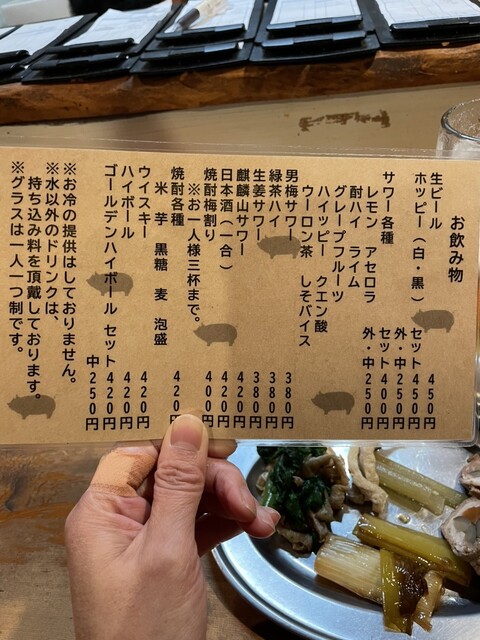 お飲み物
生ビール 450円
ホッピー（白・黒） セット450円
外・中250円
サワー各種 セット400円
レモン アセロラ 外・中250円
酎ハイ ライム
グレープフルーツ
ハイッピー クエン酸
ウーロン茶 しそバイス
男梅サワー 380円
緑茶ハイ 380円
生姜サワー 380円
麒麟山サワー 420円
日本酒（一合） 420円
焼酎梅割り 400円
※お一人様三杯まで。
焼酎各種 420円
米 芋 黒糖 麦 泡盛
ウイスキー 420円
ハイボール 420円
ゴールデンハイボール セット400円
中250円
※お冷の提供はしておりません。
※水以外のドリンクは、
持ち込み料を頂戴しております。
※グラスは一人一つ制です。